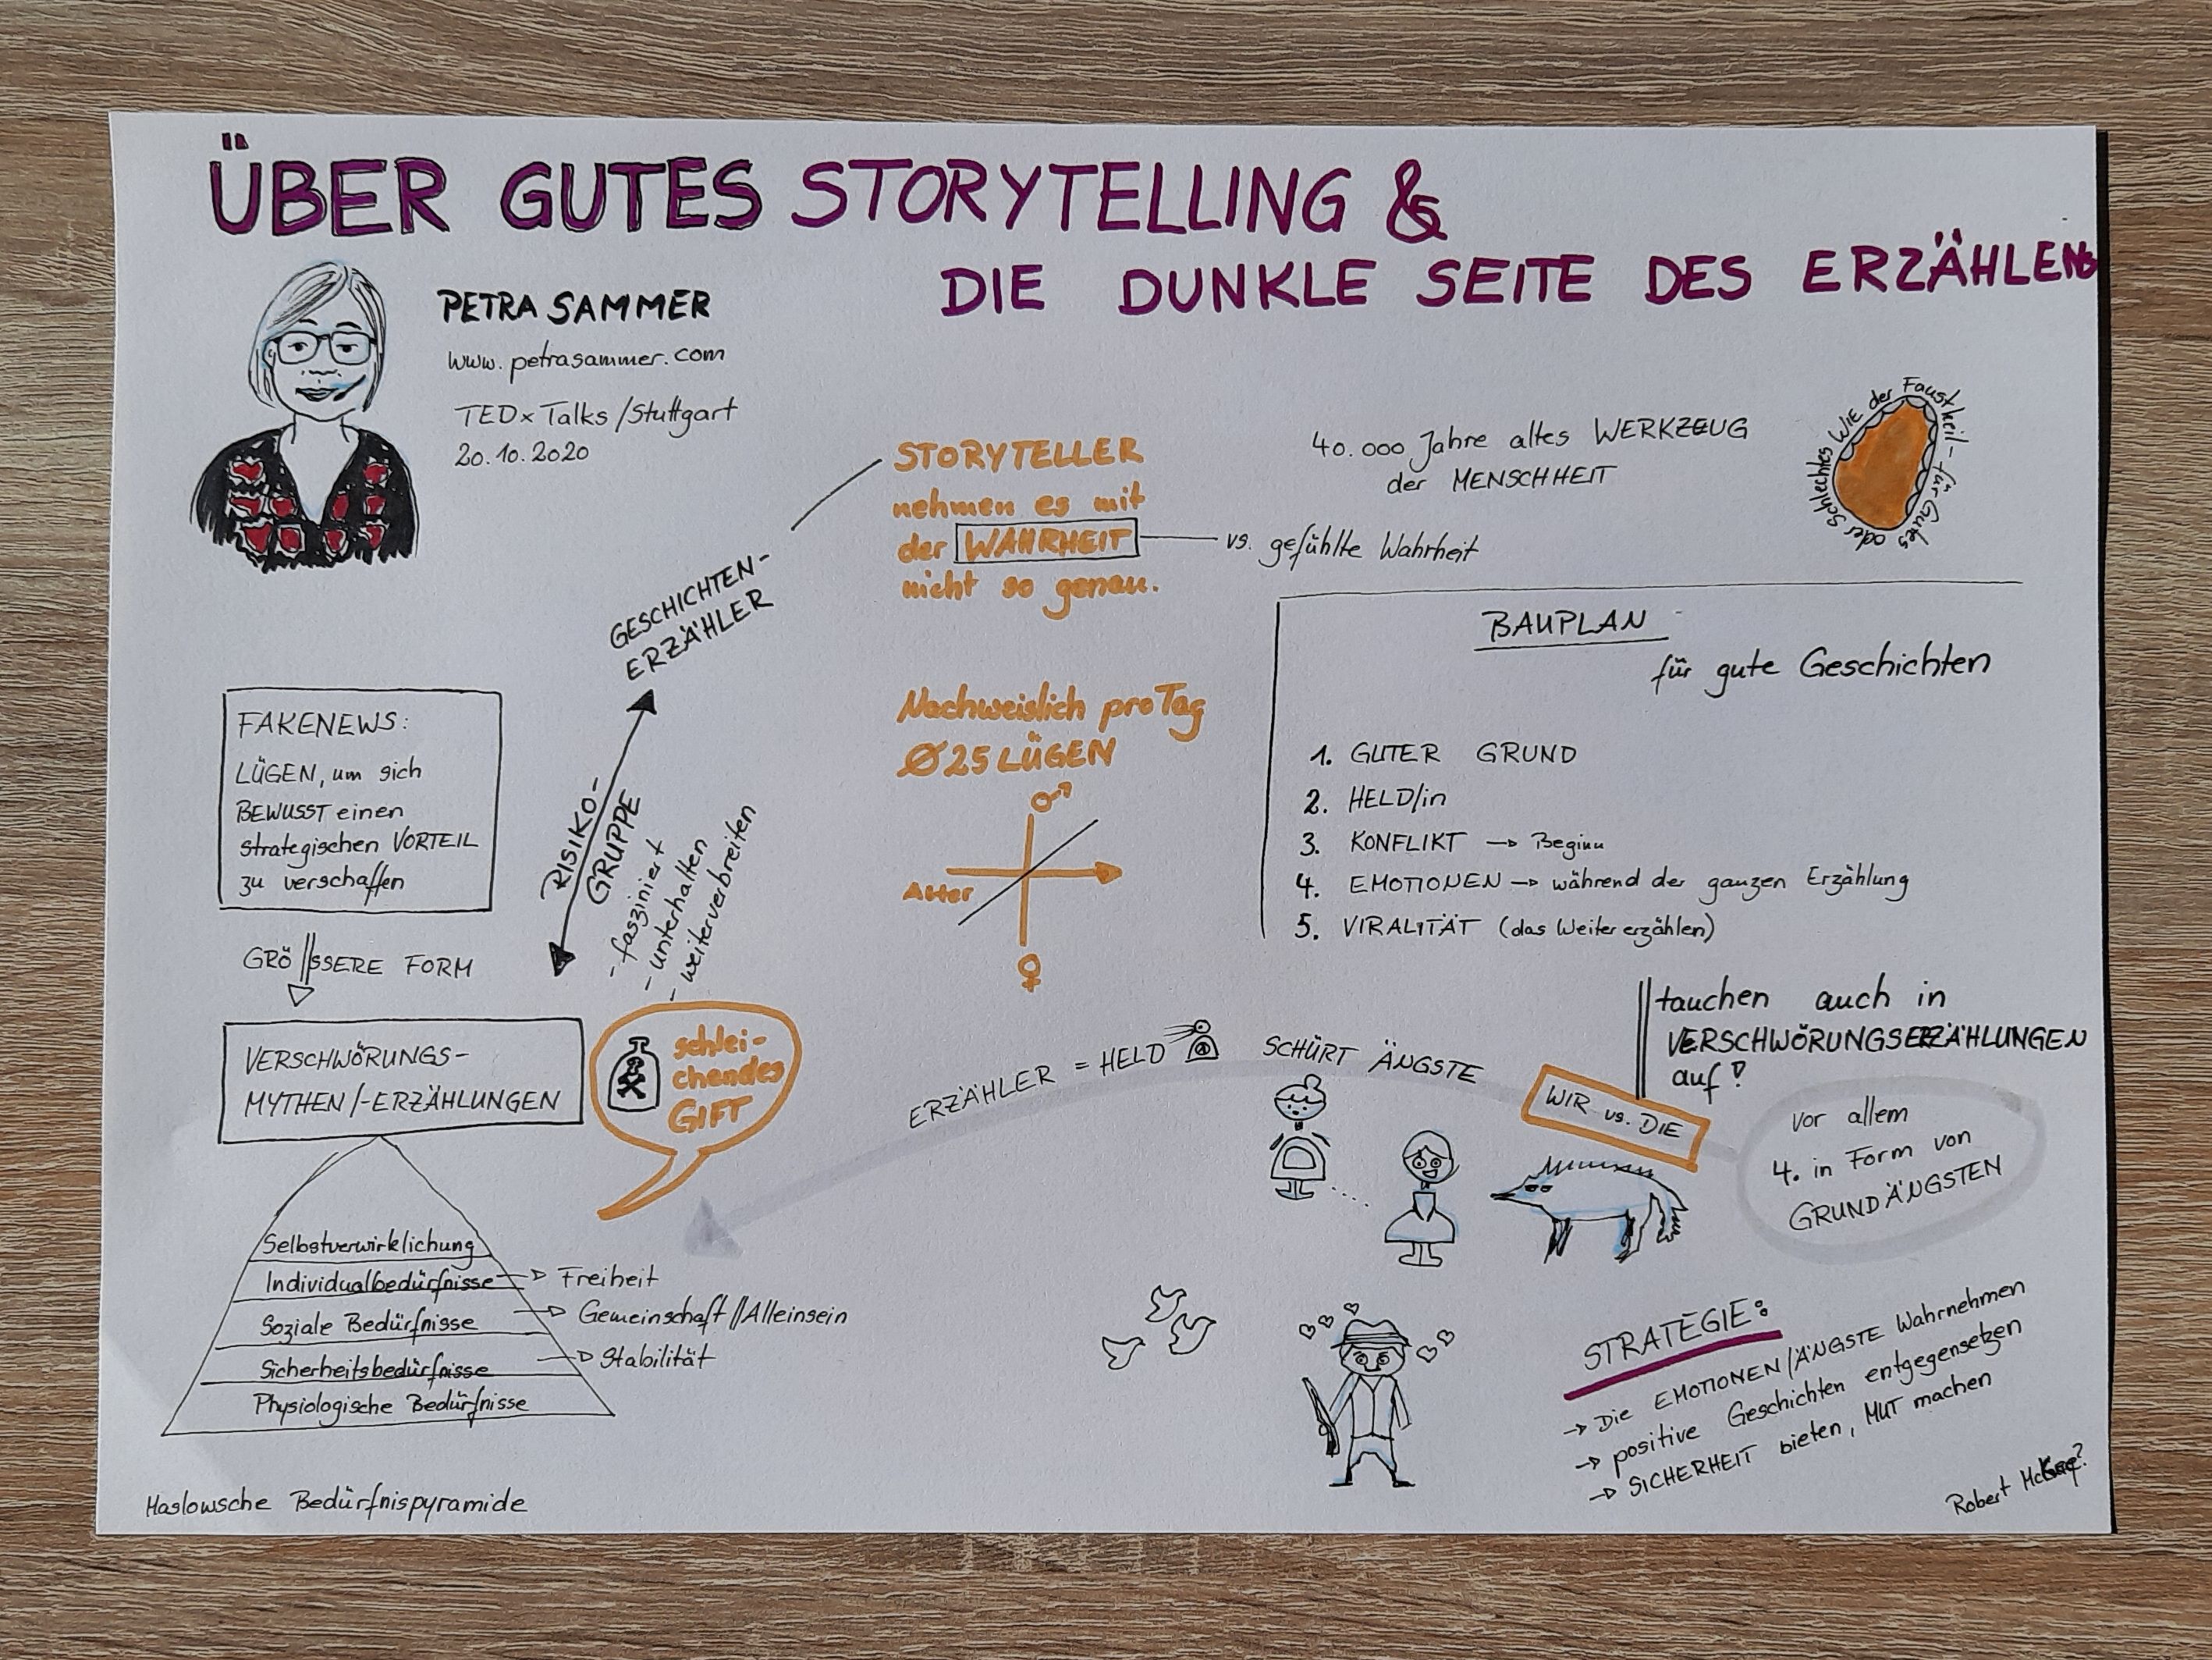 ÜBER GUTES STORYTELLING &
DIE DUNKLE SEITE DES ERZÄHLENS
PETRA SAMMER
www.petrasammer.com
TEDx Talks/Stuttgart
20.10.2020
STORYTELLER
nehmen es mit
der WAHRHEIT
nicht so genau.
vs. gefühlte Wahrheit
40.000 Jahre altes WERKZEUG
der MENSCHHEIT
WIE der Faustkeil - für Gutes oder Schlechtes
GESCHICHTEN-
ERZÄHLER
RISIKO-
GRUPPE
- fasziniert
- unterhalten
- weiterverbreiten
FAKENEWS:
LÜGEN, um sich
BEWUSST einen
strategischen VORTEIL
zu verschaffen
GRÖSSERE FORM
VERSCHWÖRUNGS-
MYTHEN/-ERZÄHLUNGEN
schlei-
chendes
GIFT
Nachweislich pro Tag
Ø 25 LÜGEN
♂
Alter
♀
BAUPLAN
für gute Geschichten
1. GUTER GRUND
2. HELD/in
3. KONFLIKT → Beginn
4. EMOTIONEN → während der ganzen Erzählung
5. VIRALITÄT (das Weitererzählen)
tauchen auch in
VERSCHWÖRUNGSERZÄHLUNGEN
auf!
vor allem
4. in Form von
GRUNDÄNGSTEN
WIR vs. DIE
SCHÜRT ÄNGSTE
ERZÄHLER = HELD
Selbstverwirklichung
Individualbedürfnisse → Freiheit
Soziale Bedürfnisse → Gemeinschaft//Alleinsein
Sicherheitsbedürfnisse → Stabilität
Physiologische Bedürfnisse
Maslowsche Bedürfnispyramide
STRATEGIE:
→ Die EMOTIONEN/ÄNGSTE Wahrnehmen
→ positive Geschichten entgegensetzen
→ SICHERHEIT bieten, MUT machen
Robert